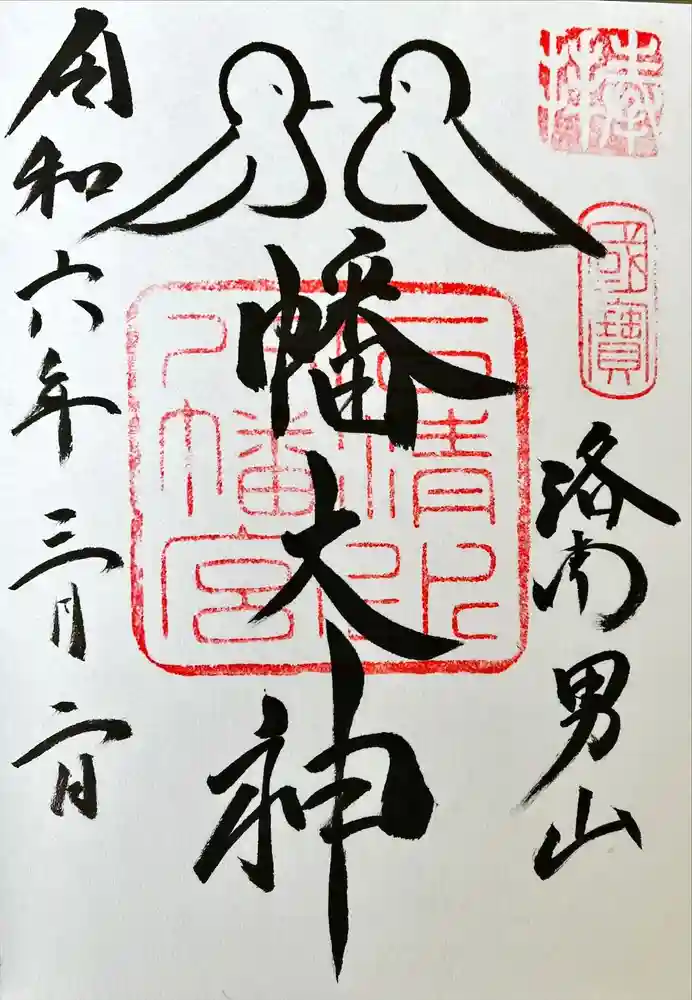 奉拝
國寶
洛南男山
八幡大神
石清水八幡宮
令和六年三月二日